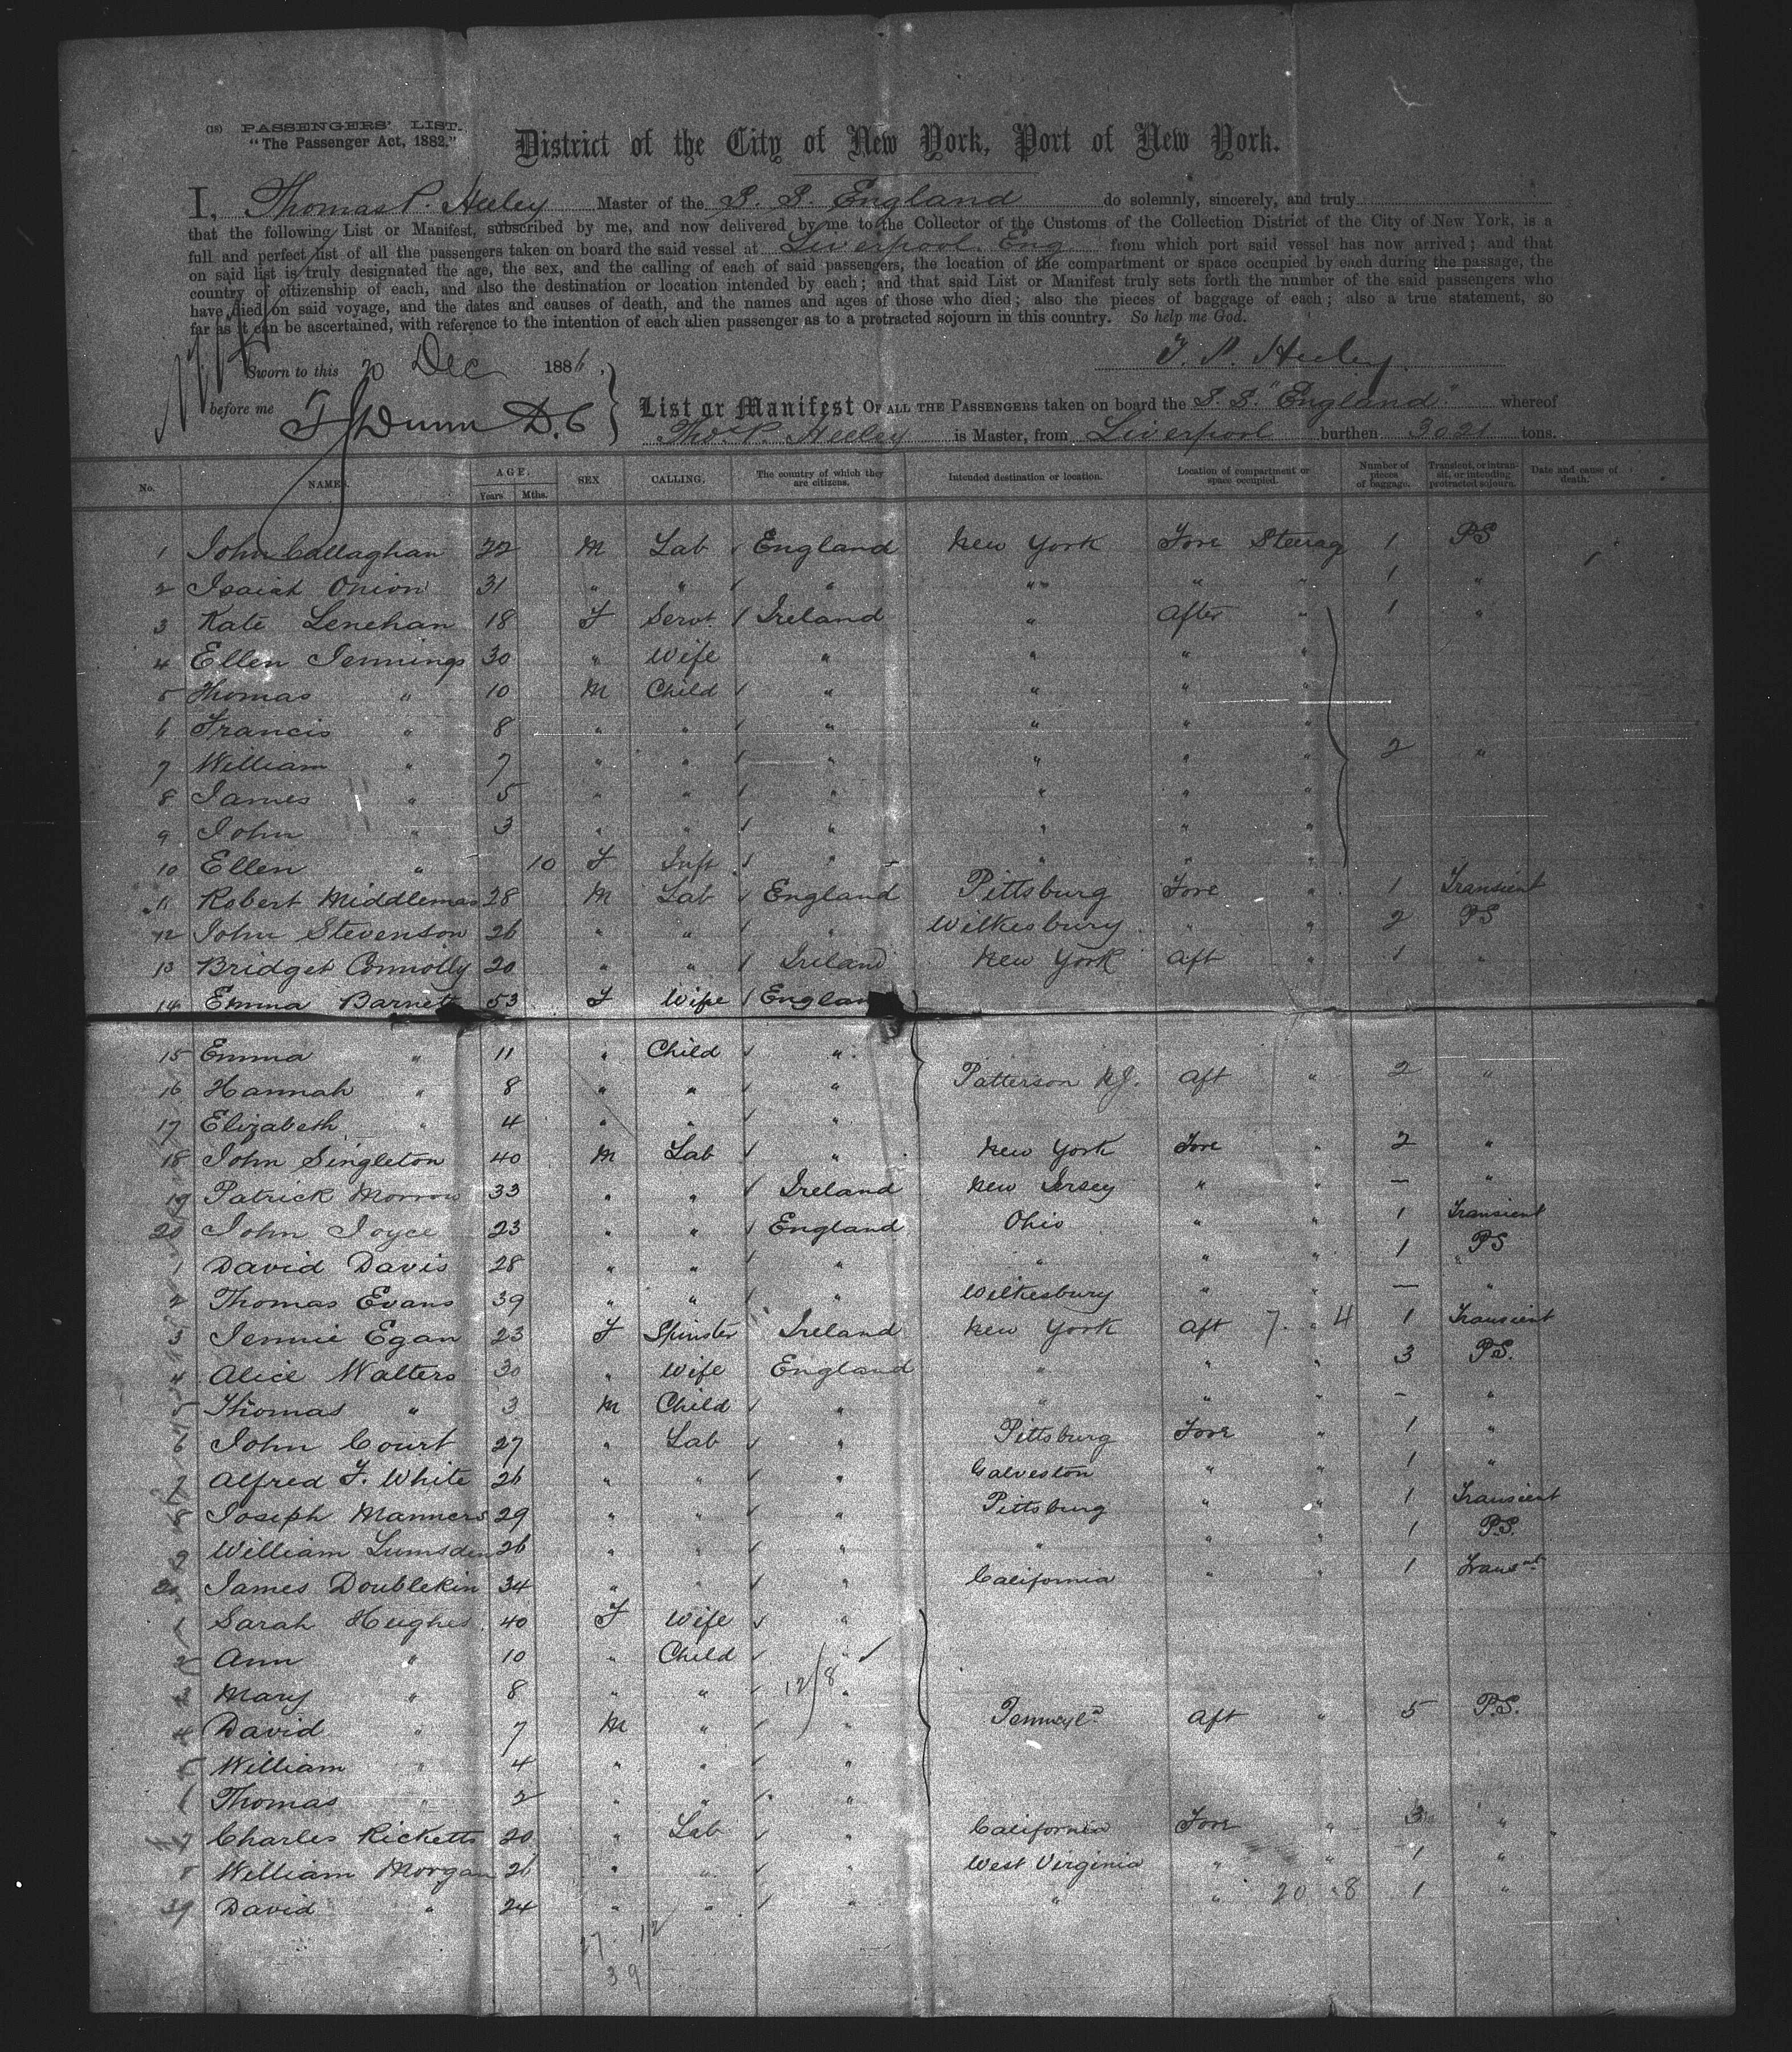 (18) PASSENGERS' LIST.
"The Passenger Act, 1882."
District of the City of New York, Port of New York.
I, Thomas P. Heeley Master of the S. S. England do solemnly, sincerely, and truly
that the following List or Manifest, subscribed by me, and now delivered by me to the Collector of the Customs of the Collection District of the City of New York, is a
full and perfect list of all the passengers taken on board the said vessel at Liverpool Eng from which port said vessel has now arrived; and that
on said list is truly designated the age, the sex, and the calling of each of said passengers, the location of the compartment or space occupied by each during the passage, the
country of citizenship of each, and also the destination or location intended by each; and that said List or Manifest truly sets forth the number of the said passengers who
have died on said voyage, and the dates and causes of death, and the names and ages of those who died; also the pieces of baggage of each; also a true statement, so
far as it can be ascertained, with reference to the intention of each alien passenger as to a protracted sojourn in this country. So help me God.
T. P. Heeley
Sworn to this 20 Dec 1886.
before me T J Dunn D.C
List or Manifest OF ALL THE PASSENGERS taken on board the S. S. "England" whereof
Thos. P. Heeley is Master, from Liverpool burthen 3021 tons.
No. NAMES. AGE. Years Mths. SEX CALLING. The country of which they are citizens. Intended destination or location. Location of compartment or space occupied. Number of pieces of baggage. Transient, or intransit, or intending protracted sojourn. Date and cause of death.
1 John Callaghan 22 M Lab England New York Fore Steerage 1 PS
2 Isaiah Onion 31 " " " " " " 1 "
3 Kate Lenehan 18 F Servt Ireland " After " 1 "
4 Ellen Jennings 30 " Wife " " " "
5 Thomas " 10 M Child " " " "
6 Francis " 8 " " " " " "
7 William " 7 " " " " " " 2 "
8 James " 5 " " " " " "
9 John " 3 " " " " " "
10 Ellen " 10 F Inft " " " "
11 Robert Middlemas 28 M Lab England Pittsburg Fore " 1 Transient
12 John Stevenson 26 " " " Wilkesbury " " 2 PS
13 Bridget Connolly 20 " " Ireland New York Aft " 1 "
14 Emma Barnett 53 F Wife England
15 Emma " 11 " Child "
16 Hannah " 8 " " " Patterson N.J. Aft " 2 "
17 Elizabeth " 4 " " "
18 John Singleton 40 M Lab " New York Fore " 2 "
19 Patrick Morrow 33 " " Ireland New Jersey " " — "
20 John Joyce 23 " " England Ohio " " 1 Transient
1 David Davis 28 " " " " " " 1 PS
2 Thomas Evans 39 " " " Wilkesbury " " — "
3 Jennie Egan 23 F Spinster Ireland New York Aft 7 " 4 1 Transient
4 Alice Walters 30 " Wife England " " " 3 P.S.
5 Thomas " 3 M Child " " " " - "
6 John Court 27 " Lab " Pittsburg Fore " 1 "
7 Alfred F. White 26 " " " Galveston " " 1 "
8 Joseph Manners 29 " " " Pittsburg " " 1 Transient
9 William Lumsden 26 " " " " " " 1 P.S.
30 James Doublekin 34 " " " California " " 1 Transnt
1 Sarah Hughes 40 F Wife "
2 Ann " 10 " Child "
3 Mary " 8 " " 12/8 "
4 David " 7 M " " Pennsyla Aft " 5 P.S.
5 William " 4 " " "
6 Thomas " 2 " " "
7 Charles Ricketts 20 " Lab " California Fore " 3 "
8 William Morgan 26 " " " West Virginia " " 1 "
39 David " 24 " " " " " 20 8 1 "
27 12
39